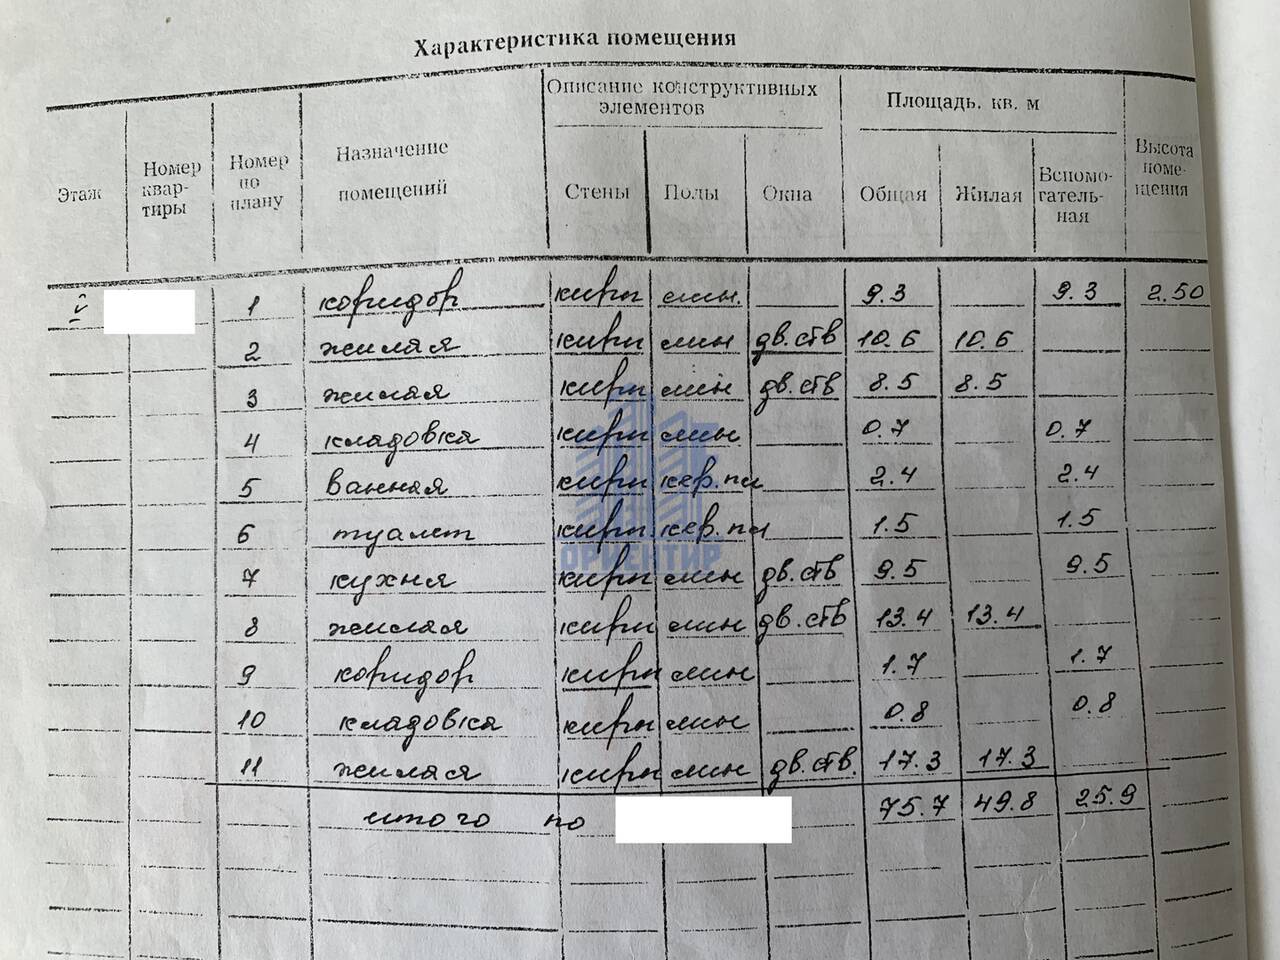 Характеристика помещения
Этаж Номер квар- тиры Номер по плану Назначение помещений Описание конструктивных элементов Площадь. кв. м Высота поме- щения
Стены Полы Окна Общая Жилая Вспомо- гатель- ная
1 коридор кирп лин. 9.3 9.3 2.50
2 жилая кирп лин дв.ств 10.6 10.6
3 жилая кирп лин дв.ств 8.5 8.5
4 кладовка кирп лин 0.7 0.7
5 ванная кирп кер.пл 2.4 2.4
6 туалет кирп кер.пл 1.5 1.5
ОРИЕНТИР
7 кухня кирп лин дв.ств 9.5 9.5
8 жилая кирп лин дв.ств 13.4 13.4
9 коридор кирп лин 1.7 1.7
10 кладовка кирп лин 0.8 0.8
11 жилая кирп лин дв.ств. 17.3 17.3
итого по 75.7 49.8 25.9